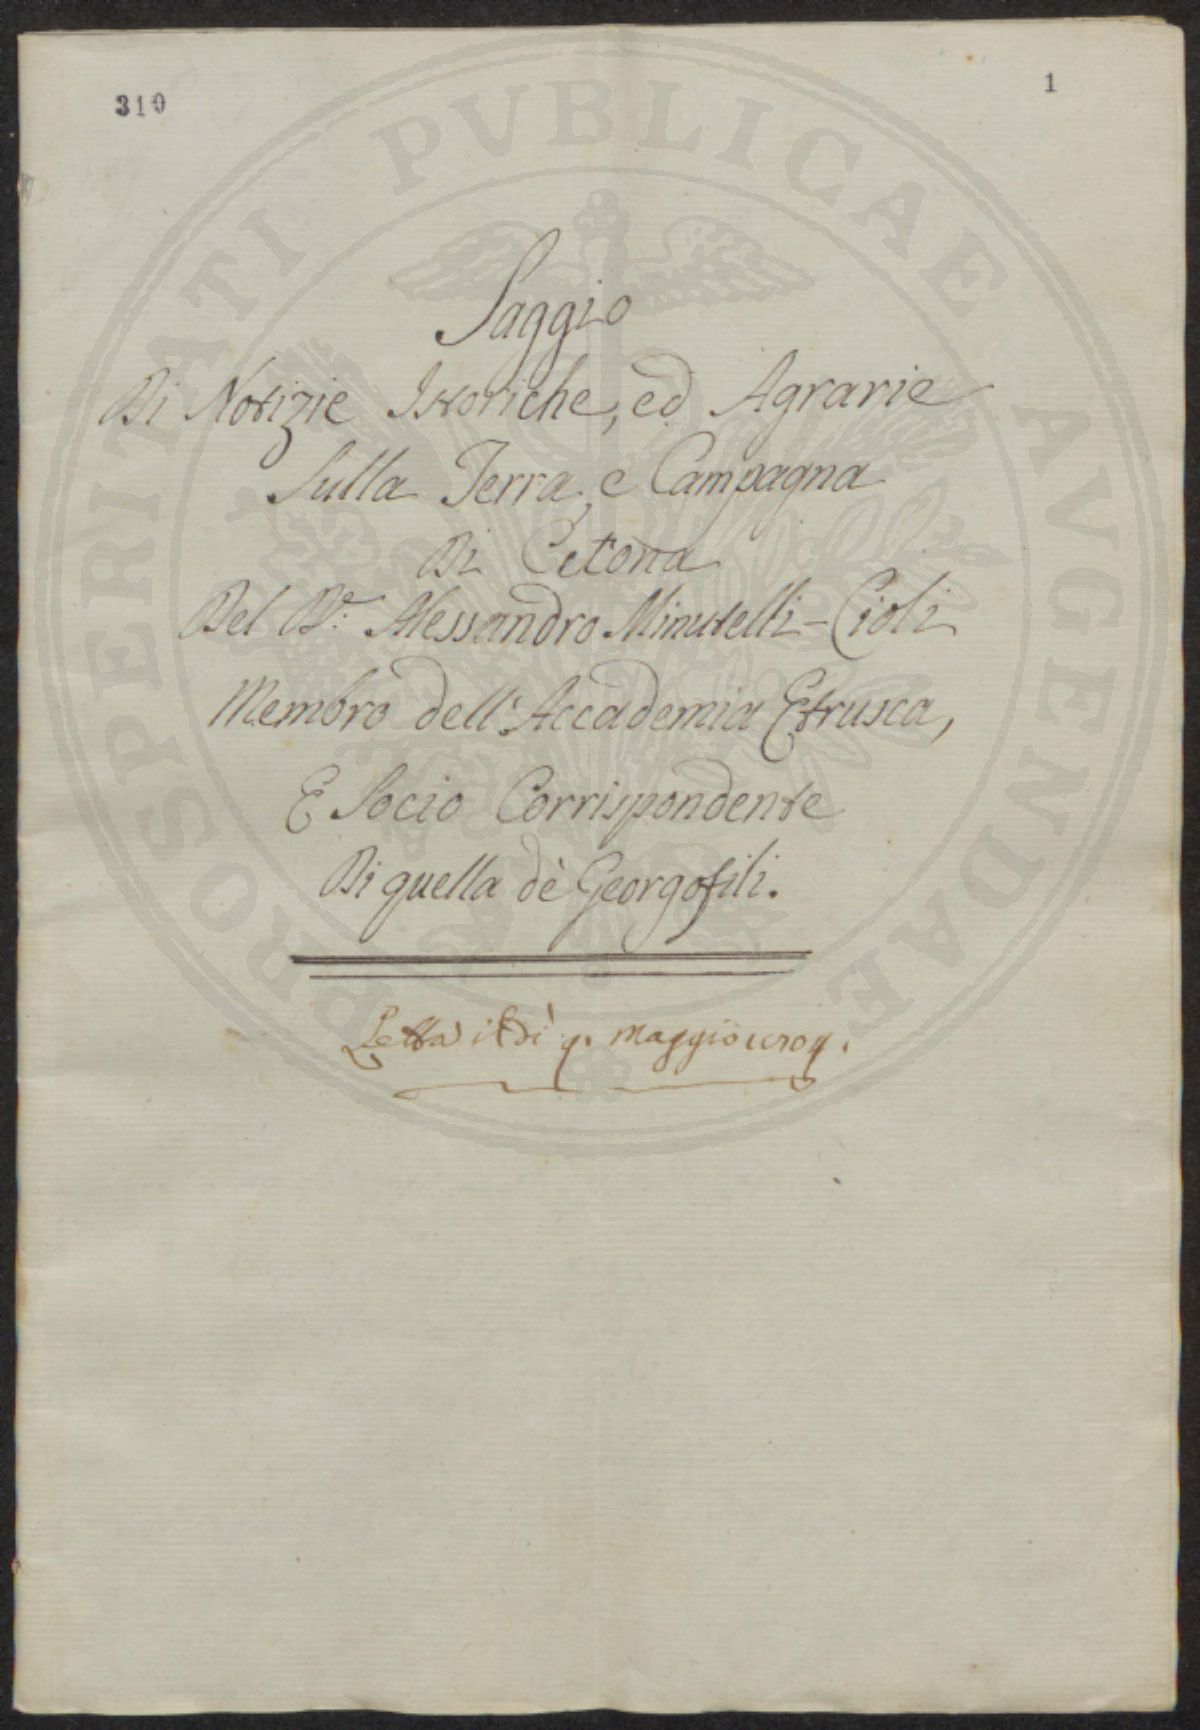 310
1
PROSPERITATI PVBLICAE AVGENDAE
Saggio
Di Notizie Istoriche, ed Agrarie
Sulla Terra, e Campagna
Di Cetona
Del Dr. Alessandro Minutelli-Cioli
Membro dell'Accademia Etrusca,
E Socio Corrispondente
Di quella dè Georgofili.
Letta il dì 9. Maggio